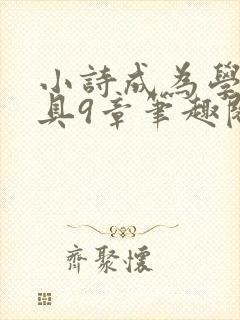 小詩成為學
具9章筆趣閣
齊聚懷